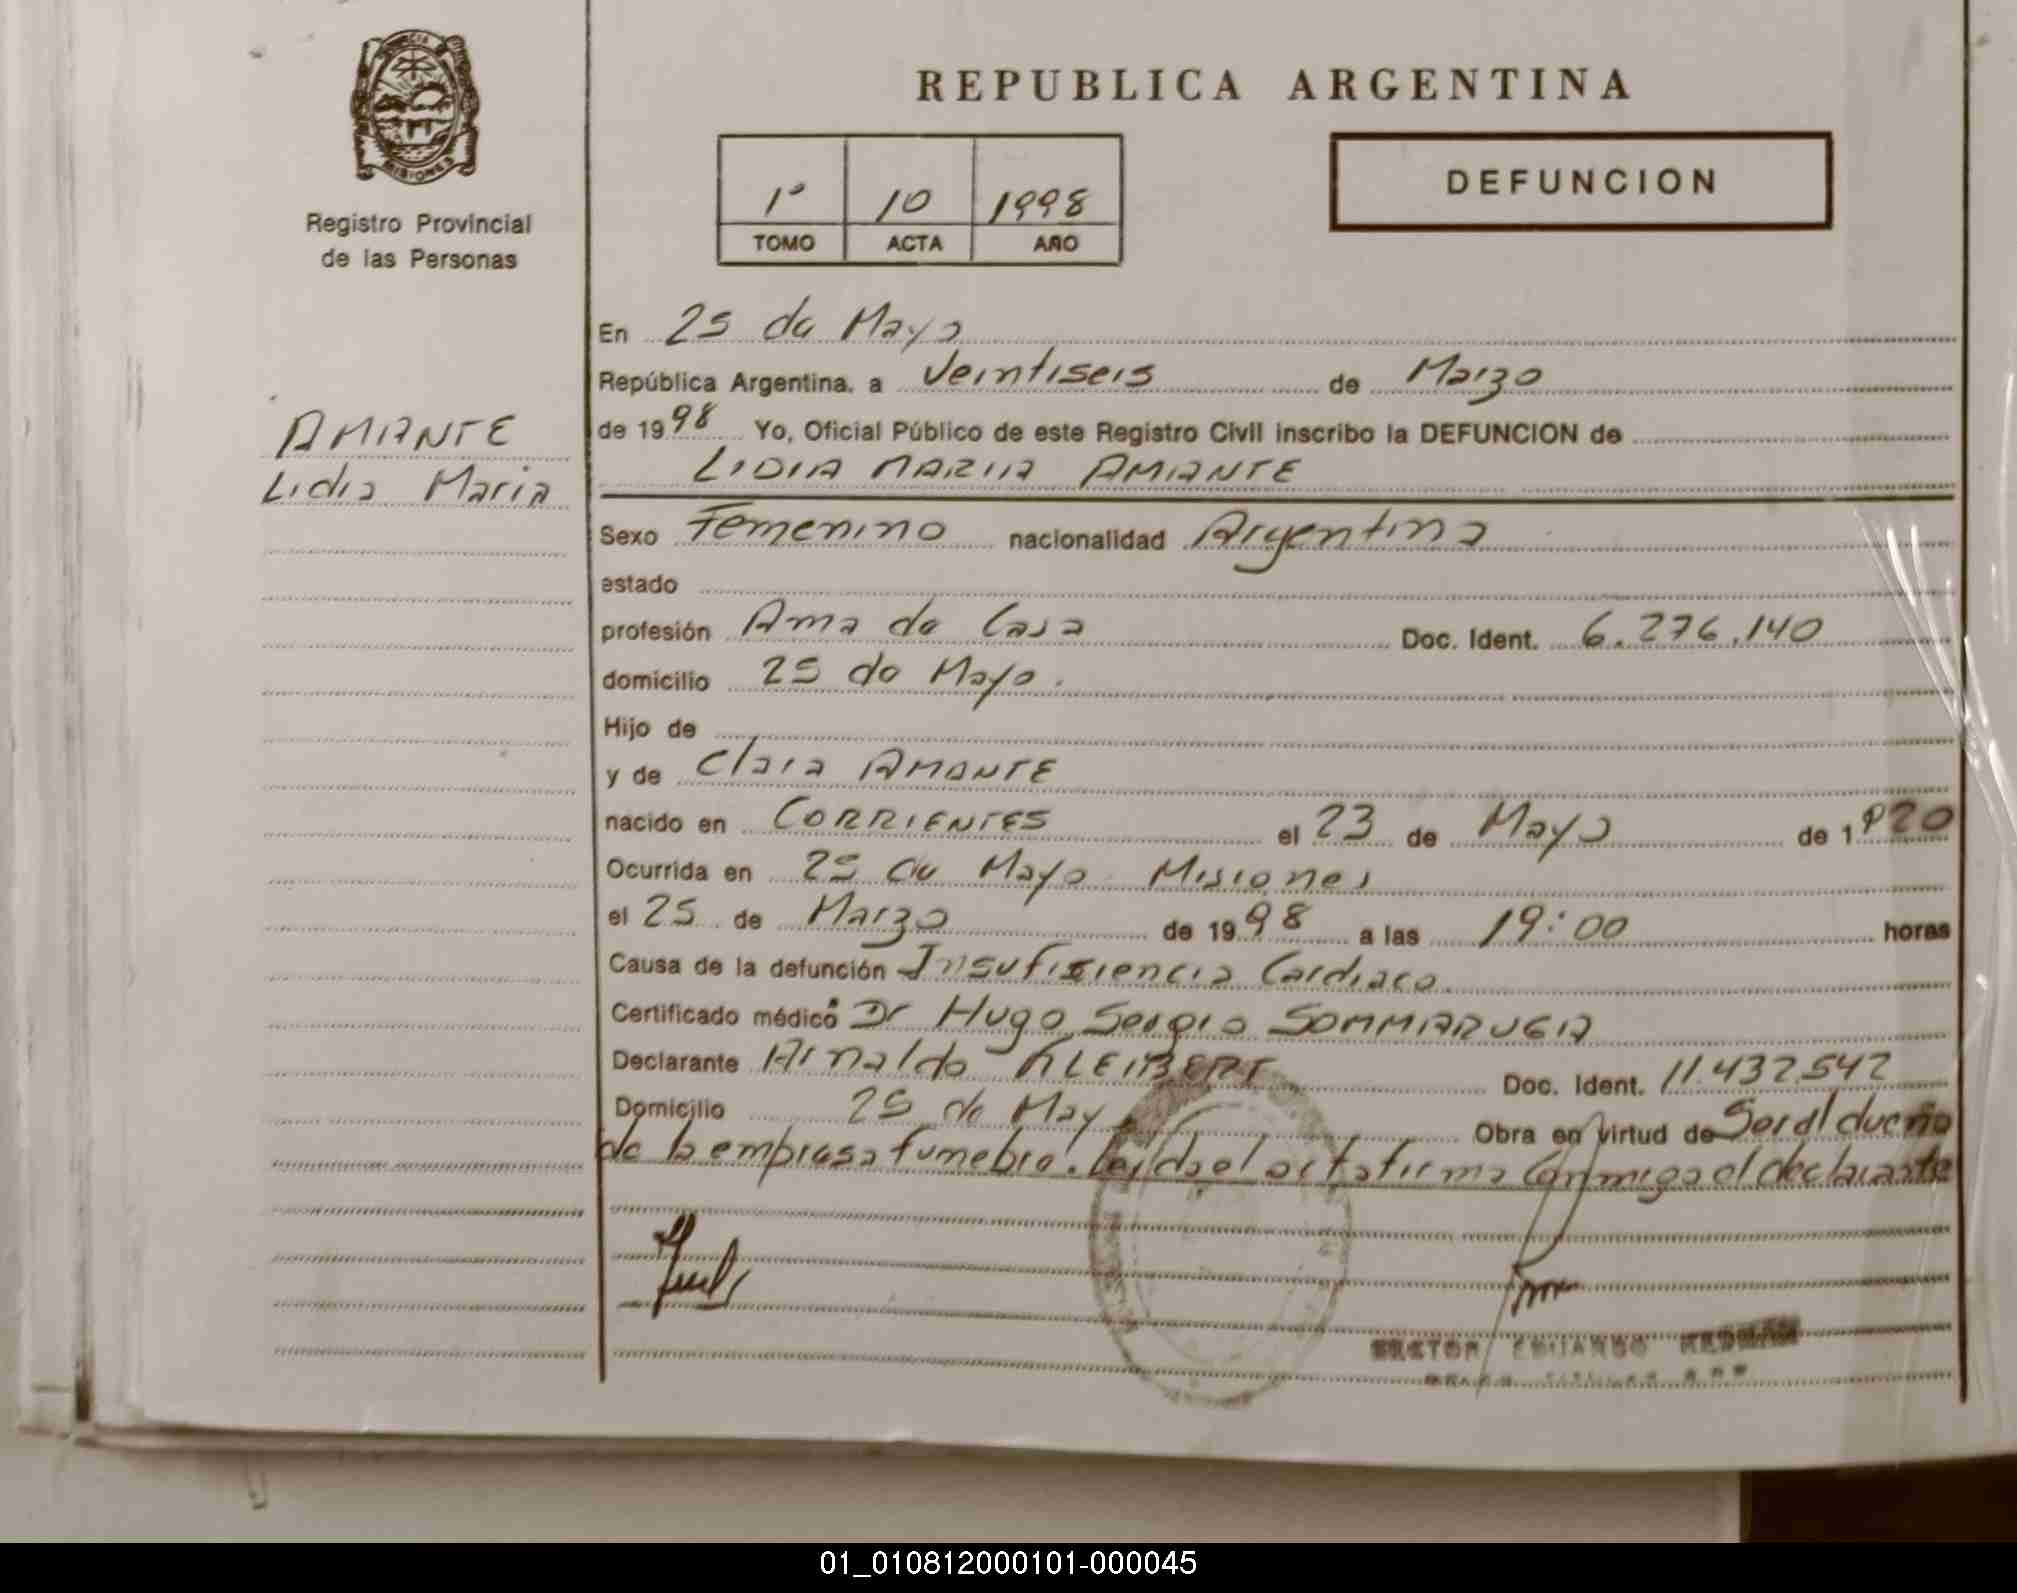 REPUBLICA ARGENTINA
DEFUNCION
1° 10 1998
TOMO ACTA AÑO
MISIONES
Registro Provincial
de las Personas
AMANTE
Lidia Maria
En 25 de Mayo
República Argentina, a Veintiseis de Marzo
de 1998 Yo, Oficial Público de este Registro Civil inscribo la DEFUNCION de
LIDIA MARIA AMANTE
Sexo Femenino nacionalidad Argentina
estado
profesión Ama de Casa Doc. Ident. 6.276.140
domicilio 25 de Mayo.
Hijo de
y de Clara AMANTE
nacido en CORRIENTES el 23 de Mayo de 1920
Ocurrida en 25 de Mayo Misiones
el 25 de Marzo de 1998 a las 19:00 horas
Causa de la defunción Insufisiencia Cardiaca.
Certificado médico Dr Hugo Sergio SOMMARUGA
Declarante Arnaldo KLEIBERT Doc. Ident. 11.432.542
Domicilio 25 de Mayo Obra en virtud de Ser al dueño
de la empresa funebre. Leida el acta firma conmigo el declarante
HECTOR EDUARDO
01_010812000101-000045